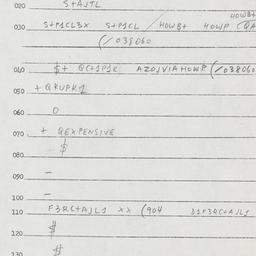 020 S+AJTL
HOWB+
030 S+P1CL3X S+P1CL / HOWB+ HOWP (QA
(/038060
040 $+ QC+1P1K AZOJVIAHOWP (/038060
050 +QKUPK1
060 O
070 + QEXPENSIVE
080 $
090 -
100 -
110 F3RC+AJL1 XX (904 31F3RC+AJL1
120 $
130 $